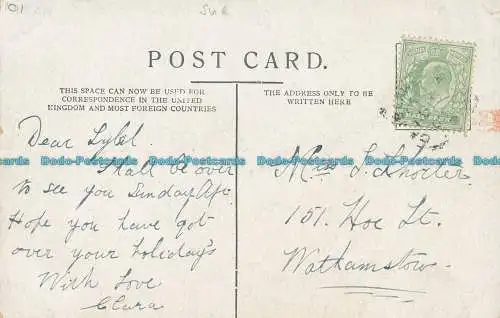 101
POST CARD.
THIS SPACE CAN NOW BE USED FOR
CORRESPONDENCE IN THE UNITED
KINGDOM AND MOST FOREIGN COUNTRIES
THE ADDRESS ONLY TO BE
WRITTEN HERE
Dear Sybel.
Shall be over
to see you Sunday Aft.
Hope you have got
over your holiday's
With Love
Clara
Miss S.
151. Hoe St.
Wathamstow.
Dodo-Postcards Dodo-Postcards Dodo-Postcards Dodo-Postcards
Dodo-Postcards Dodo-Postcards Dodo-Postcards Dodo-Postcards